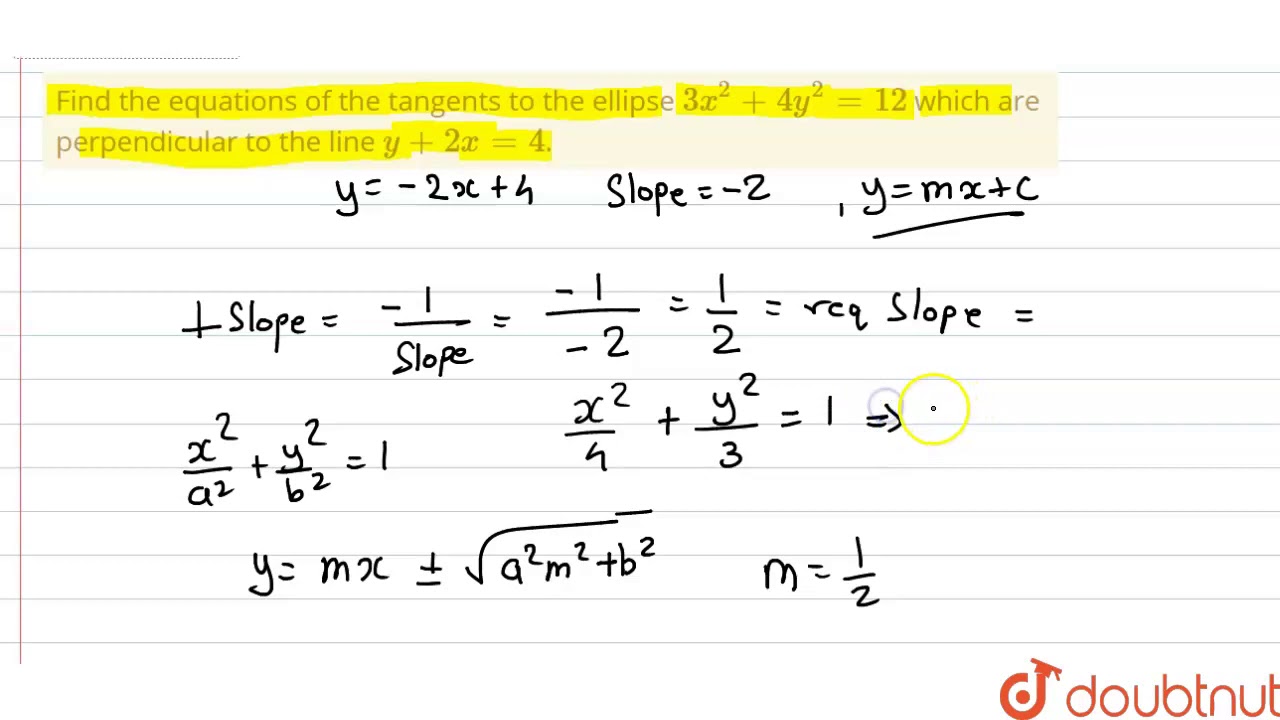 Find the equations of the tangents to the ellipse 3x² + 4y² = 12 which are
perpendicular to the line y + 2x = 4.
y = -2x + 4 Slope = -2 , y = mx + c
⊥ Slope = -1/Slope = -1/-2 = 1/2 = req Slope =
x²/a² + y²/b² = 1 x²/4 + y²/3 = 1 ⇒
y = mx ± √(a²m² + b²) m = 1/2
doubtnut